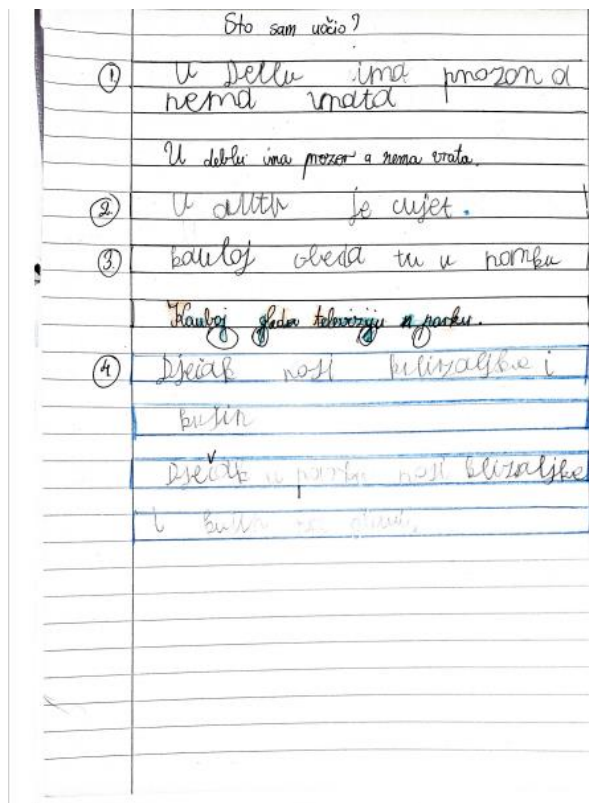 Što sam uočio?
1. U Deblu ima prozor a
nema vrata
U deblu ima prozor a nema vrata.
2. U je cvijet.
3. kauboj gleda tv u
Kauboj gleda televiziju u parku.
4. Dječak nosi klizaljke i
Dječak u nosi klizaljke
i